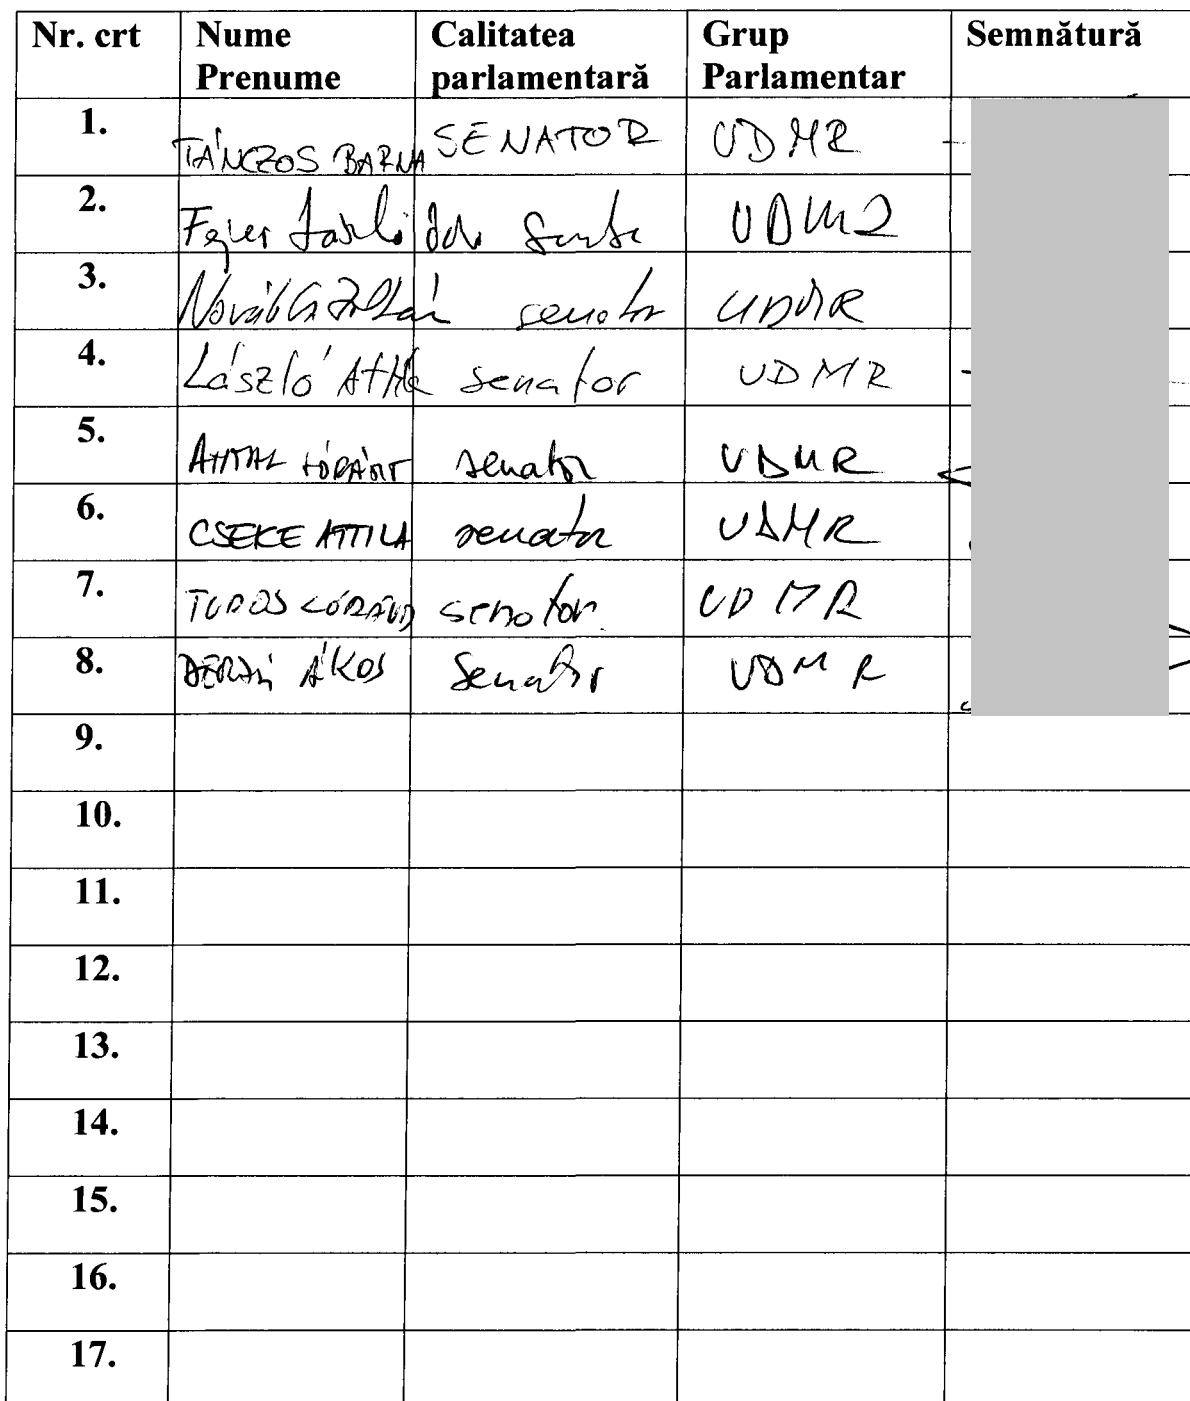 Nr. crt Nume Prenume Calitatea parlamentară Grup Parlamentar Semnătură
1. TÁNCZOS BARNA SENATOR UDMR
2. Fejér László UDMR
3. Novák Zoltán senator UDMR
4. László Attila senator UDMR
5. ANTAL LÓRÁNT senator UDMR
6. CSEKE ATTILA senator UDMR
7. LÓRÁND senator UDMR
8. ÁKOS Senator UDMR
9.
10.
11.
12.
13.
14.
15.
16.
17.